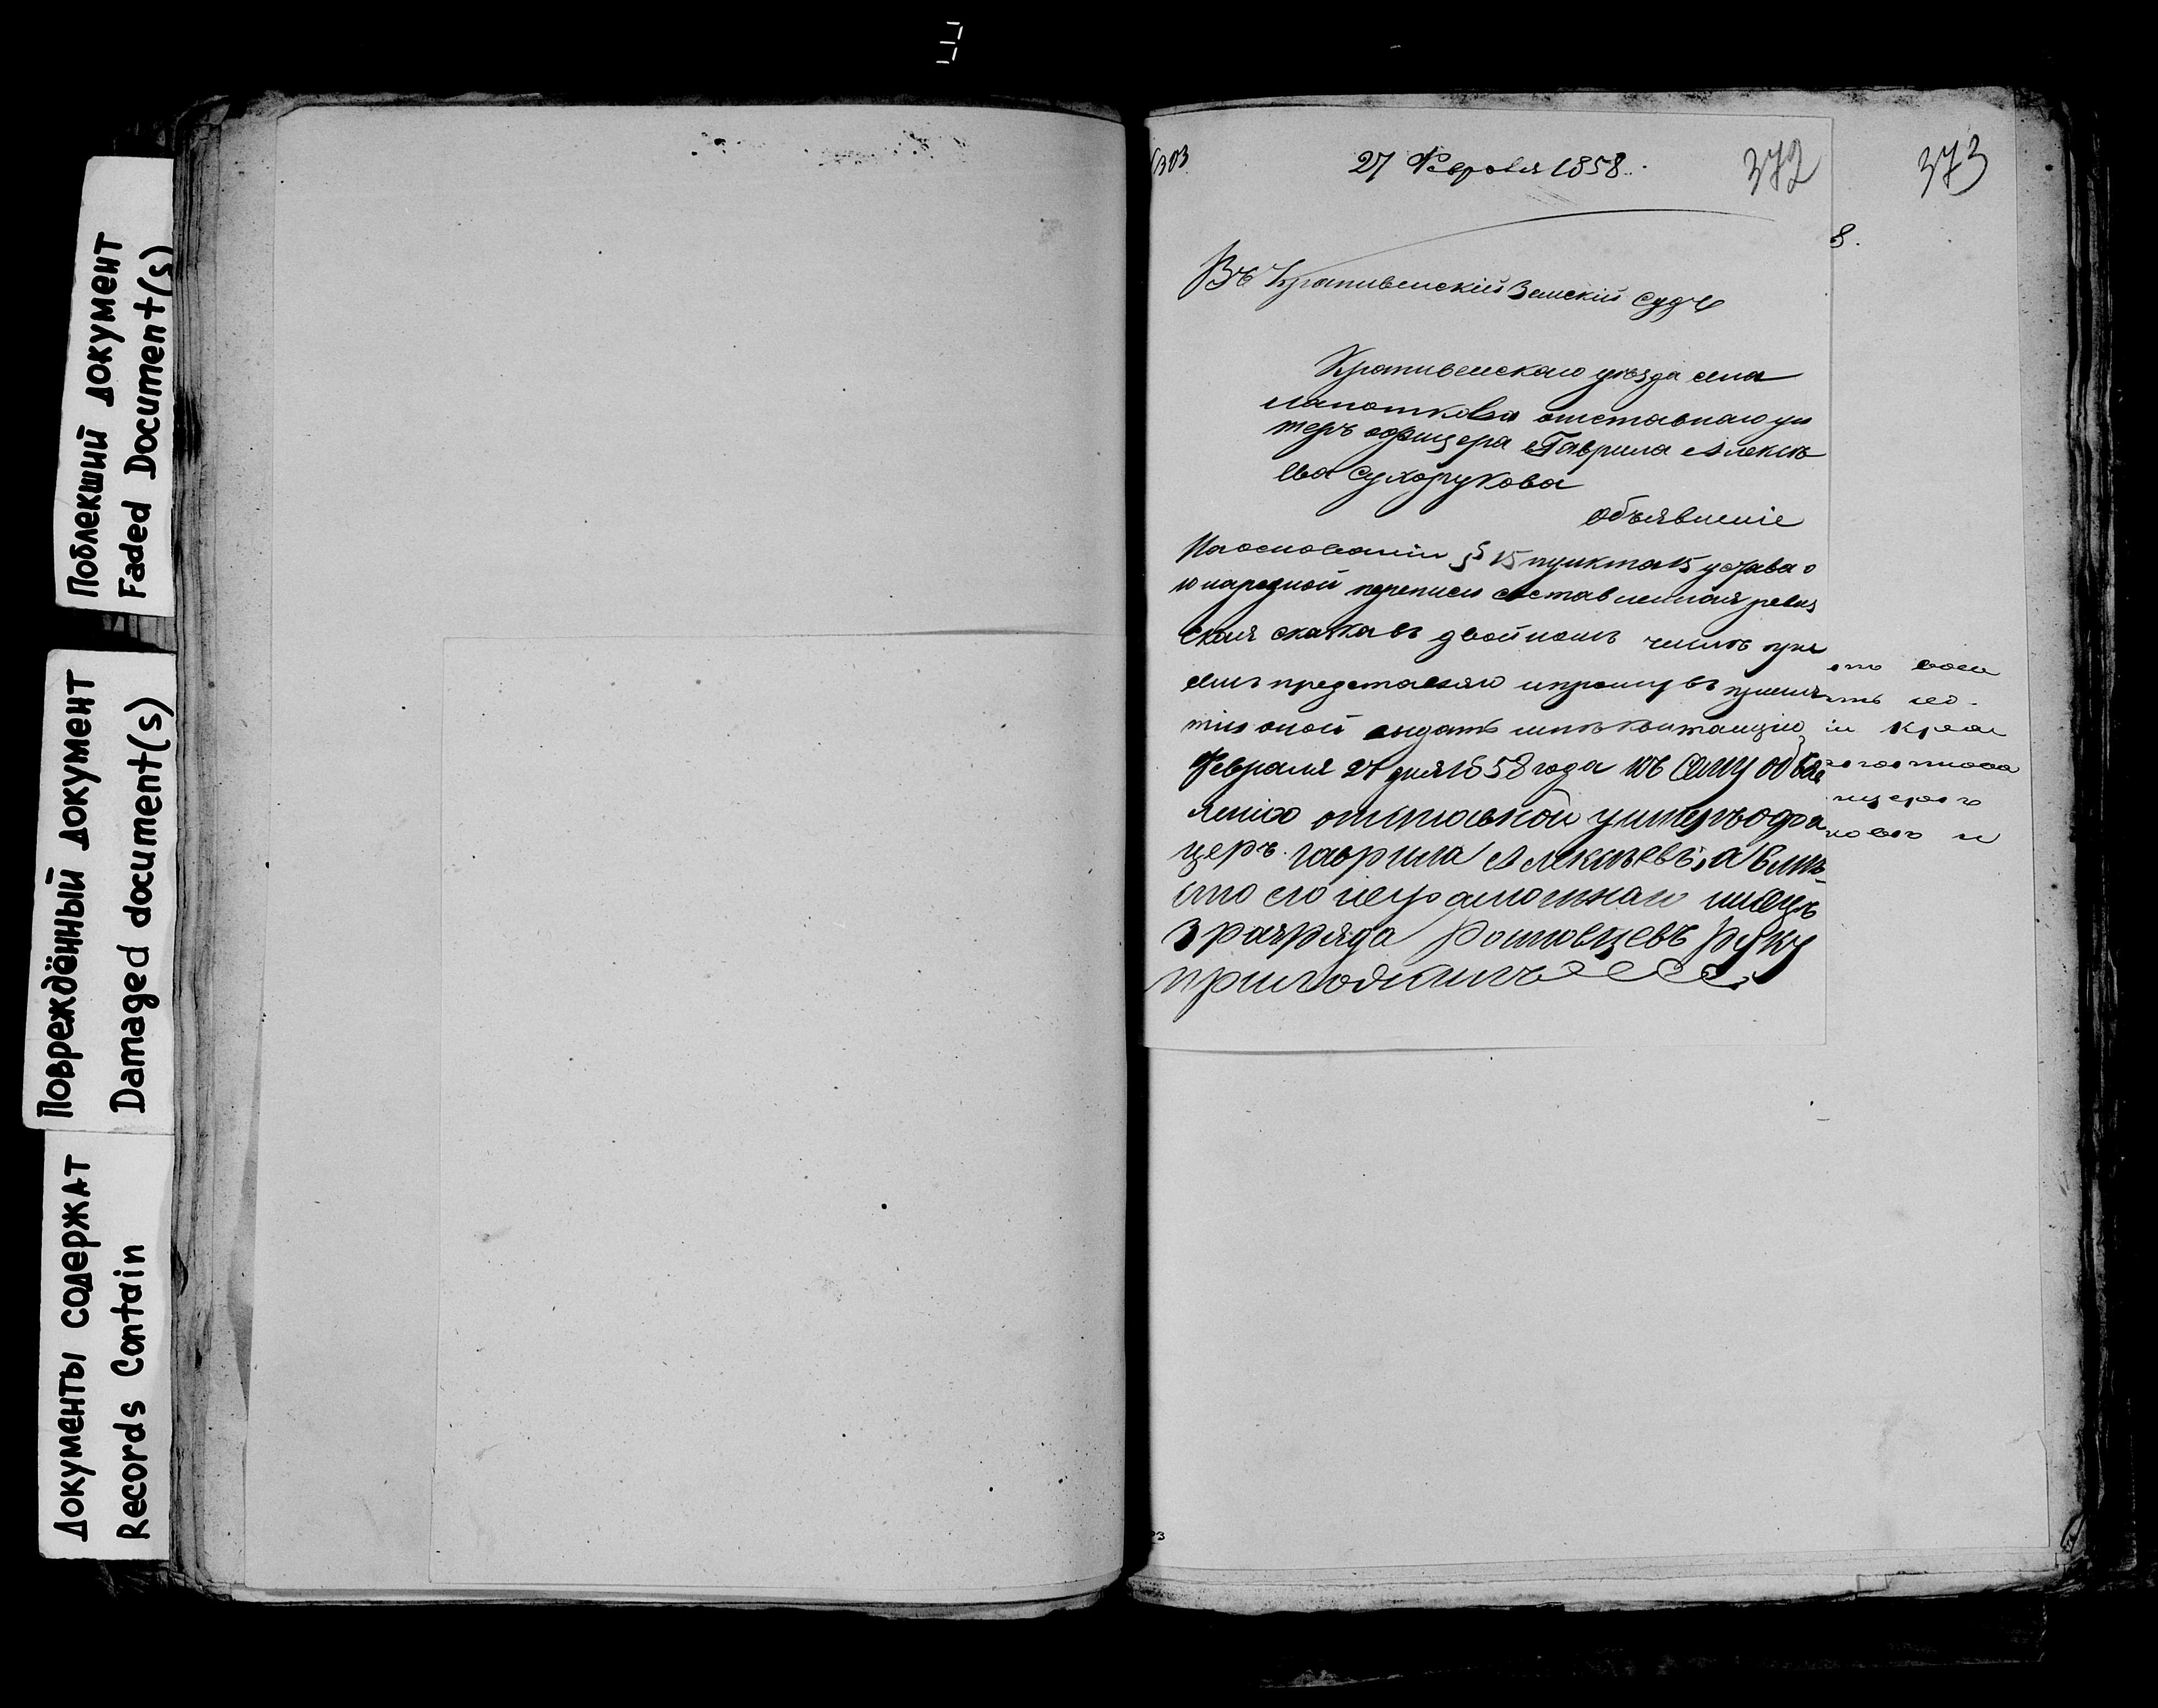 Поблекший документ
Faded Document(s)
Повреждённый документ
Damaged document(s)
Документы содержат
Records Contain
27 Февраля 1858.
372
373
8.
Въ Крапивенскій Земскій Судъ
Крапивенскаго уѣзда села
лапоткова отставнаго ун
теръ офицера Гаврила Алексѣ
ева Сухорукова
Объявленіе
На основаніи § 15 пункта 15 устава о
ю народной переписи составленная ревиз
ская сказка въ двойномъ числѣ при
семъ представляю и прошу въ приня
тіи оной выдать мнѣ квитанцію
Февраля 27 дня 1858 года къ сему объяв
ленію отставной унтеръ офи
церъ гаврила Алексѣевъ, а вмѣ
сто его неграмотнаго писецъ
3 разряда Ростовцевъ руку
приложилъ